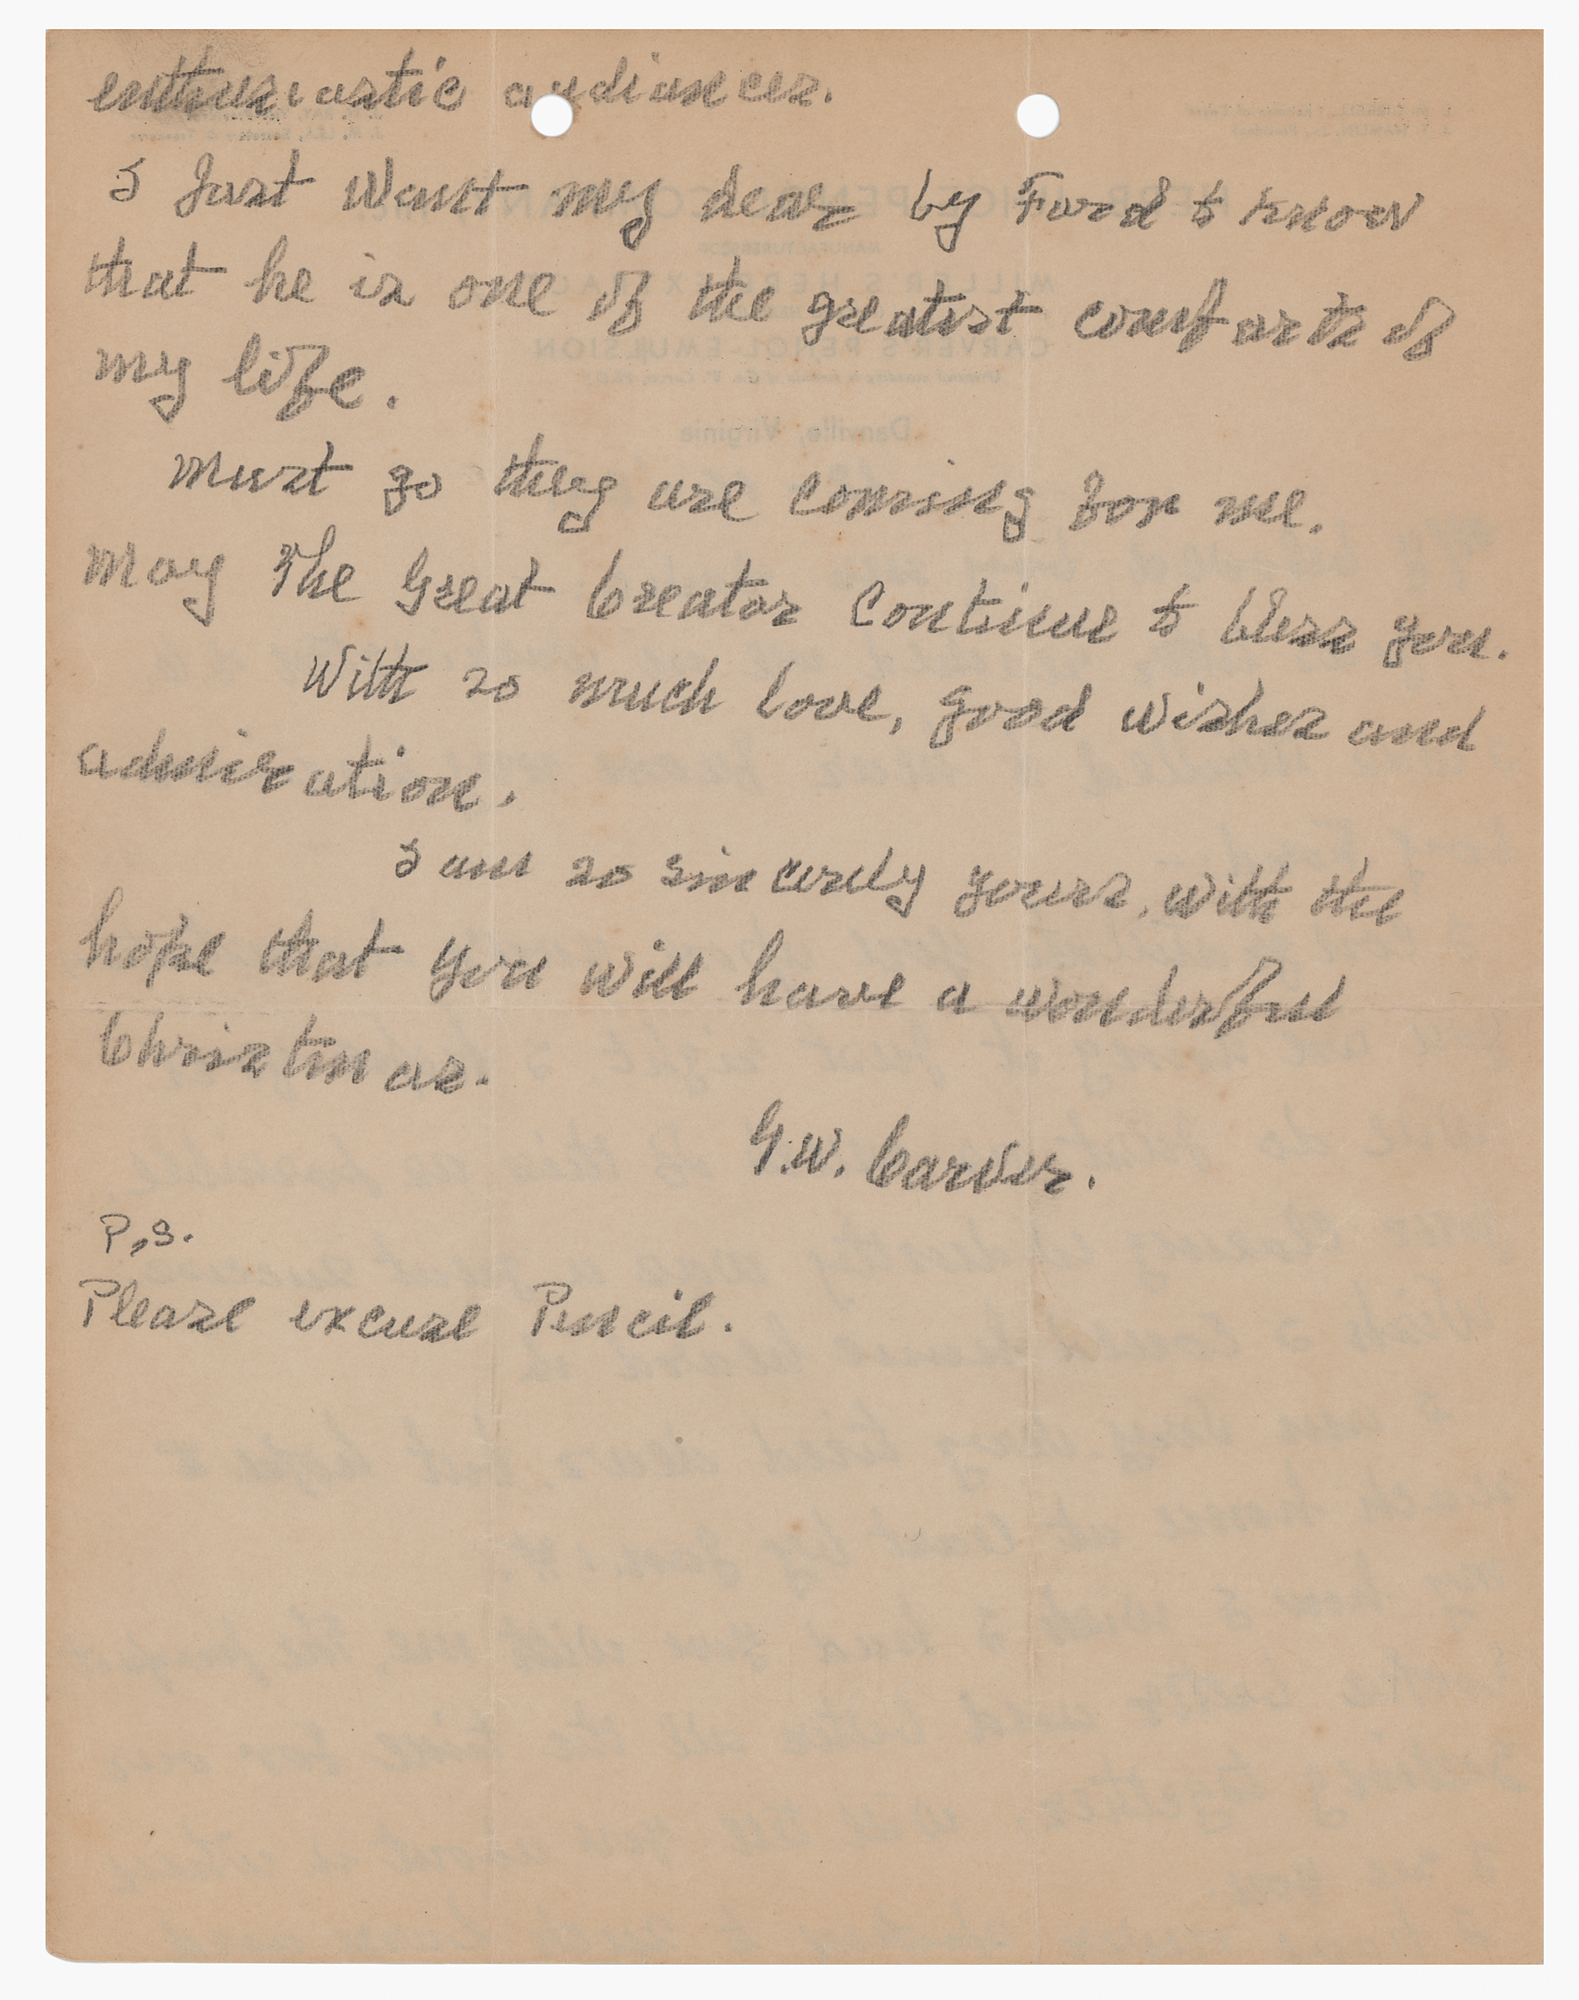 enthusiastic audiances.
I Just want my dear by Ford to know
that he is one of the greatest comforts of
my life.
must go they are coming for me.
May The Great Creator Continue to bless you.
With so much love, good wishes and
admiration.
I am so sincerely yours, with the
hope that you will have a wonderful
Christmas.
G.W. Carver.
P.S.
Please excuse Pencil.